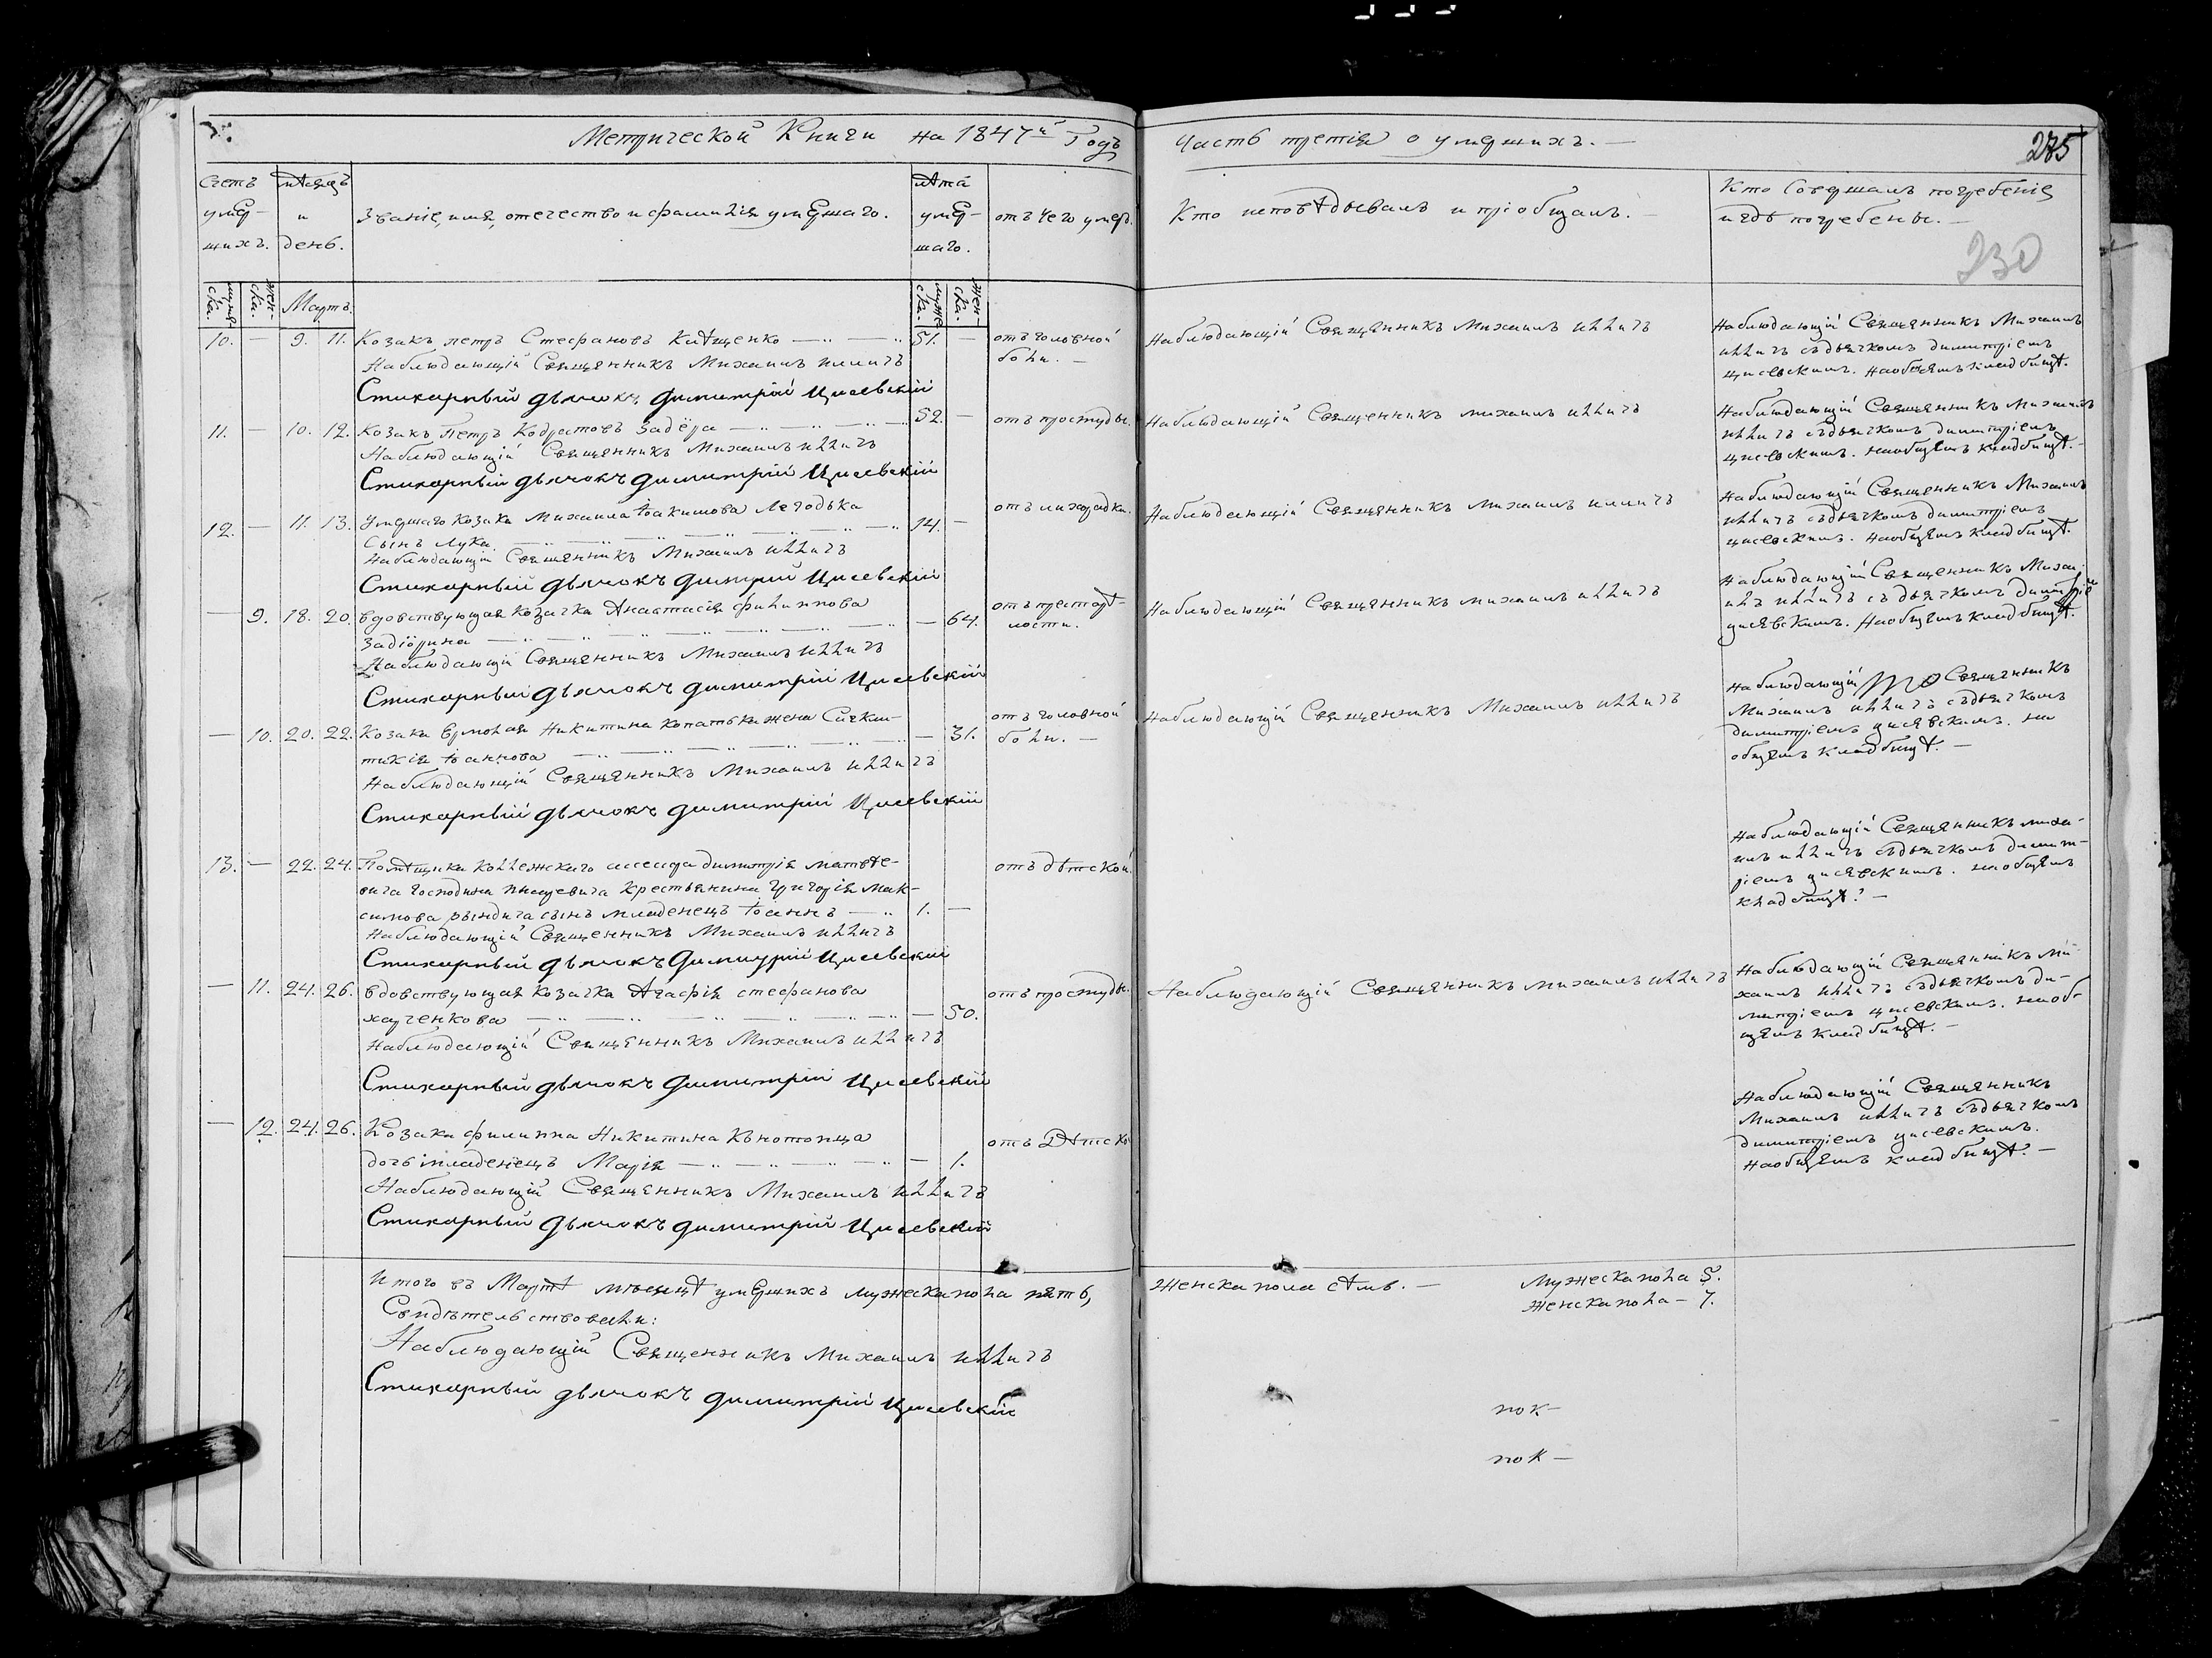 Метрической Книги на 1847й Годъ
Часть третія о умершихъ. —
285
230
Счетъ умер-шихъ.
мѣсяцъ и день.
Званіе, имя, отечество и фамилія умершаго.
лѣта умер-шаго.
отъ чего умеръ.
Кто исповѣдывалъ и пріобщалъ. —
Кто Совершалъ погребеніе
и гдѣ погребены. —
мужеска. женска. Мартъ. мужеска. женска.
10. — 9. 11. Козакъ петръ Стефановъ Клѣщенко 51. — отъ головной боли. —
Наблюдающій Священникъ Михаилъ илличъ
Стихарный дьячокъ димитрій Цисевскій
Наблюдающій Священникъ Михаилъ илличъ
Наблюдающій Священникъ Михаилъ
илличъ съдьячкомъ димитріемъ
цисевскимъ. Наобщемъ кладбищѣ.
11. — 10. 12. Козакъ Петръ Кодратовъ Задёра 52. — отъ простуды.
Наблюдающій Священникъ Михаилъ илличъ
Стихарный дьячокъ димитрій Цисевскій
Наблюдающій Священникъ михаилъ илличъ
Наблюдающій Священникъ Михаилъ
илличъ съдьячкомъ димитріемъ
цисевскимъ. наобщемъ кладбищѣ. —
12. — 11. 13. Умершаго Козака Михаила Іоакимова Легодька
сынъ Лука 14. — отъ лихорадки.
Наблюдающій Священникъ Михаилъ илличъ
Стихарный дьячокъ димитрій Цисевскій
Наблюдающій Священникъ михаилъ илличъ
Наблюдающій Священникъ Михаилъ
илличъ съдьячкомъ димитріемъ
цисевскимъ. Наобщемъ кладбищѣ.
— 9. 18. 20. вдовствующая козачка Анастасія филиппова
Задіорина — 64. отъ престарѣ-лости.
Наблюдающій Священникъ Михаилъ илличъ
Стихарный дьячокъ димитрій Цисевскій
Наблюдающій Священникъ михаилъ илличъ
Наблюдающій Священникъ Миха-
илъ илличъ съ дьячкомъ димитріе
цисевскимъ. Наобщемъ кладбищѣ.
— 10. 20. 22. Козака Ермолая Никитина Копатька жена Сикли-
тикія Іоаннова — 31. отъ головной боли. —
Наблюдающій Священникъ Михаилъ илличъ
Стихарный дьячокъ димитрій Цисевскій
Наблюдающій Священникъ Михаилъ илличъ
Наблюдающій Священникъ
Михаилъ илличъ съдьячкомъ
димитріемъ цисевскимъ. на
общемъ кладбищѣ. —
13. — 22. 24. Помѣщика Коллежскаго ассесора димитрія матвѣе-
вича Господина Крестьянина Григорія Мак-
симова рындича сынъ младенецъ Іоаннъ 1. — отъ дѣтской.
Наблюдающій Священникъ Михаилъ илличъ
Стихарный дьячокъ димитрій Цисевскій
Наблюдающій Священникъ миха-
илъ илличъ съдьячкомъ димит-
ріемъ цисевскимъ. наобщемъ
кладбищѣ. —
— 11. 24. 26. вдовствующая козачка Агафія стефанова
харченкова — 50. отъ простуды.
Наблюдающій Священникъ Михаилъ илличъ
Стихарный дьячокъ димитрій Цисевскій
Наблюдающій Священникъ михаилъ илличъ
Наблюдающій Священникъ ми-
хаилъ илличъ съдьячкомъ ди-
митріемъ цисевскимъ. наоб-
щемъ кладбищѣ. —
— 12. 24. 26. Козака филиппа Никитина Конотопца
дочь младенецъ Марія — 1. отъ Дѣтск
Наблюдающій Священникъ Михаилъ илличъ
Стихарный дьячокъ димитрій Цисевскій
Наблюдающій Священникъ
Михаилъ илличъ съдьячкомъ
димитріемъ цисевскимъ.
наобщемъ кладбищѣ. —
Итого въ Мартѣ мѣсяцѣ умершихъ мужеска пола пять, Женска пола сѣмь. —
Мужеска пола 5.
Женска пола — 7.
Свидѣтельствовали:
Наблюдающій Священникъ Михаилъ илличъ
Стихарный дьячокъ димитрій Цисевскій